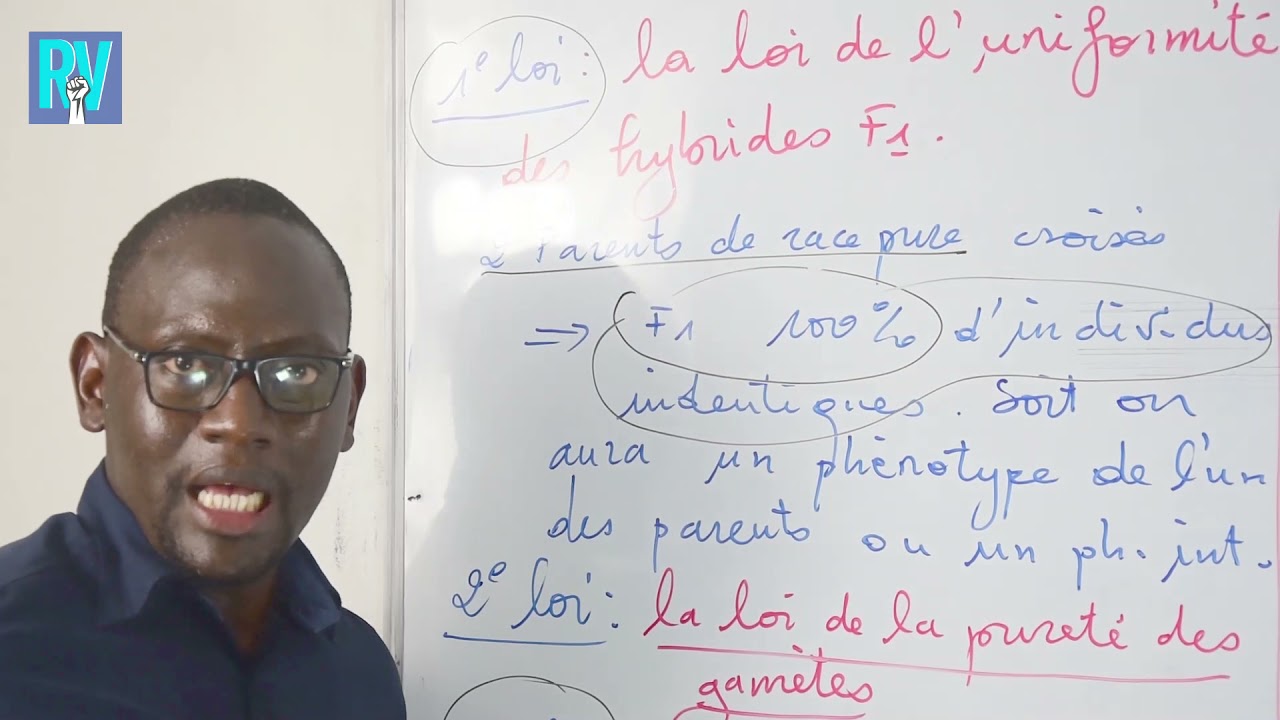 RV
1e loi : la loi de l'uniformité
des hybrides F1.
2 Parents de race pure croisés
=> F1 100% d'individus
indentiques. Soit on
aura un phénotype de l'un
des parents ou un ph. int.
2e loi : la loi de la pureté des
gamètes